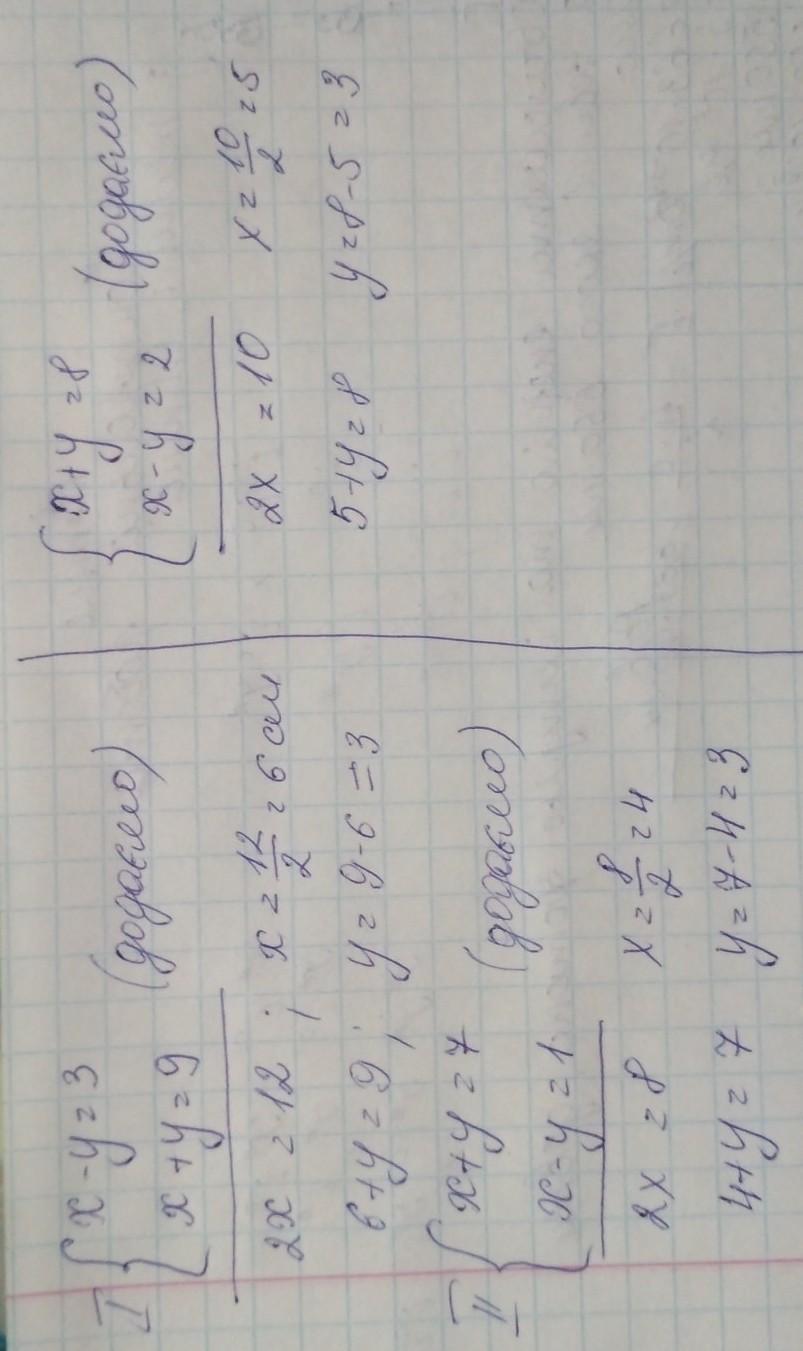 I { x - y = 3
x + y = 9 (додаємо)
2x = 12 ; x = 12/2 = 6 см
6 + y = 9 ; y = 9 - 6 = 3
II { x + y = 7
x - y = 1 (додаємо)
2x = 8 x = 8/2 = 4
4 + y = 7 y = 7 - 4 = 3
{ x + y = 8
x - y = 2 (додаємо)
2x = 10 x = 10/2 = 5
5 + y = 8 y = 8 - 5 = 3